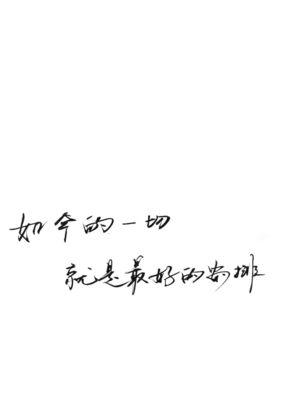 如今的一切
就是最好的安排